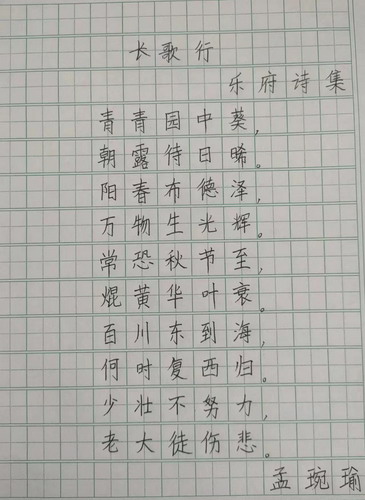 长歌行
乐府诗集
青青园中葵,
朝露待日晞。
阳春布德泽,
万物生光辉。
常恐秋节至,
焜黄华叶衰。
百川东到海,
何时复西归。
少壮不努力,
老大徒伤悲。
孟琬瑜